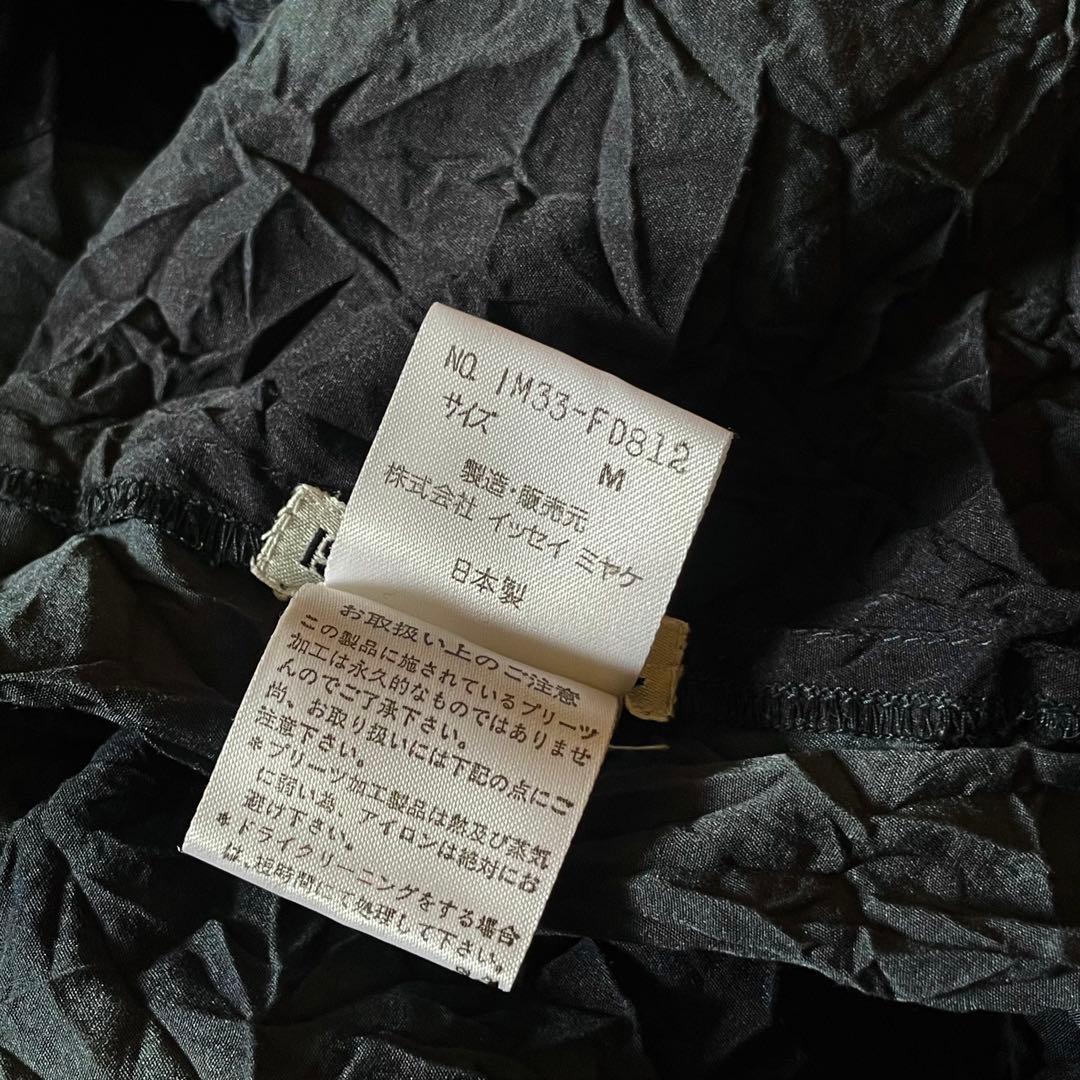 NO. IM33-FD812
サイズ M
製造・販売元
株式会社 イッセイ ミヤケ
日本製
お取扱い上のご注意
この製品に施されているプリーツ
加工は永久的なものではありませ
んのでご了承下さい。
尚、お取り扱いには下記の点にご
注意下さい。
*プリーツ加工製品は熱及び蒸気
に弱い為、アイロンは絶対にお
避け下さい。
*ドライクリーニングをする場合
は、短時間にて処理して下さい。